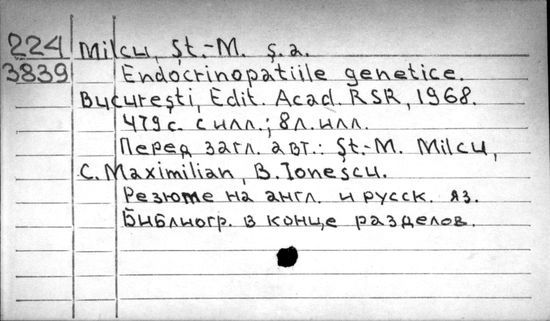 224 Milcu, Şt.-M. ş.a.
3839 Endocrinopatiile genetice.
Bucureşti, Edit. Acad. RSR, 1968.
479 с. с илл.; 8 л. илл.
Перед загл. авт.: Şt.-M. Milcu,
C. Maximilian, B. Ionescu.
Резюме на англ. и русск. яз.
Библиогр. в конце разделов.